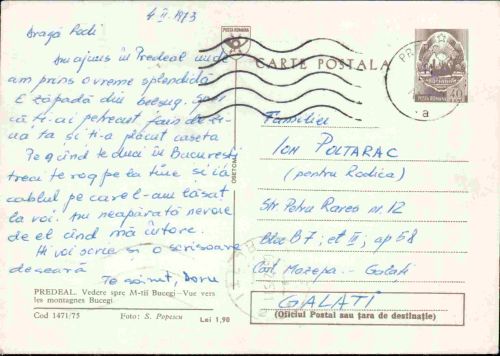 4 II 1973
Dragă Rodi
Am ajuns în Predeal unde
am prins o vreme splendidă
E zăpadă din belșug. Sper
că ți-ai petrecut
ta și ți-a plăcut caseta
Te când te duci în București
treci te rog pe la tine și ia
cablul pe care l-am lăsat
la voi. Am neapărată nevoie
de el când mă întorc.
Hi voi scrie și o scrisoare
deseară
Te sărut, Doru
PREDEAL. Vedere spre M-ții Bucegi—Vue vers
les montagnes Bucegi
Cod 1471/75 Foto: S. Popescu Lei 1,90
POSTA ROMANA
CARTE POSTALA
POSTA ROMANA 40
a
Familiei
ION POLTARAC
(pentru Rodica)
Str. Petru Rareș nr. 12
Bloc B7; et III; ap 58
Cart. Mazepa - Galați
GALAȚI
(Oficiul Postal sau țara de destinație)